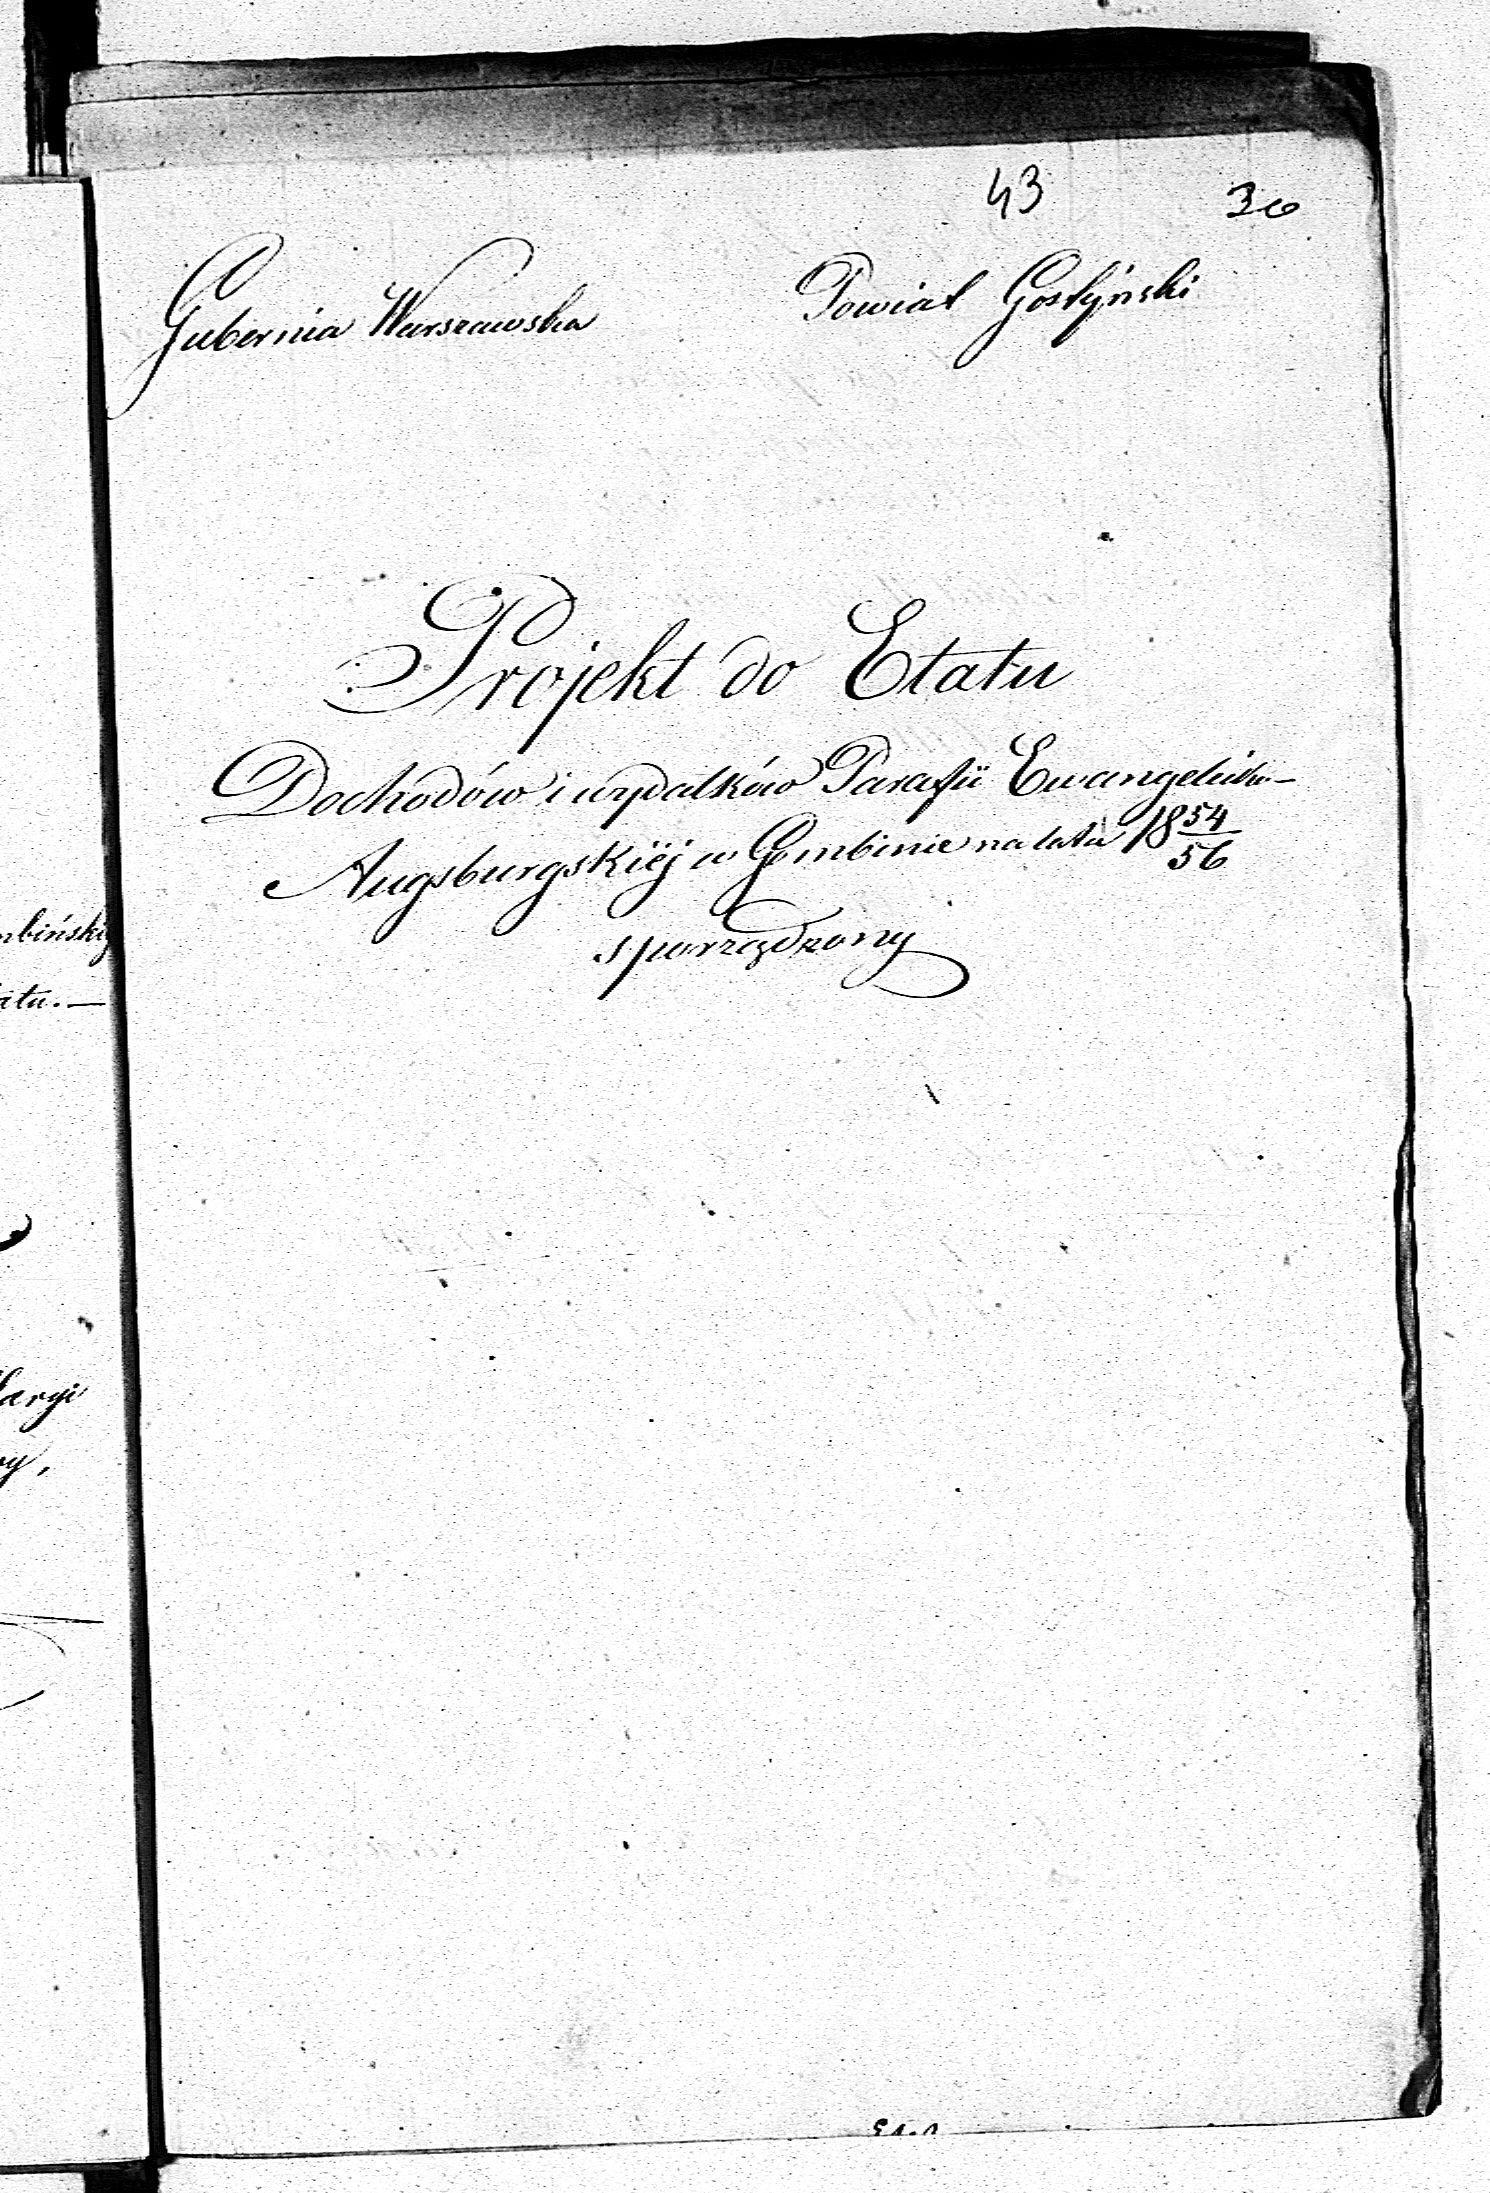 43 36
Gubernia Warszawska Powiat Gostyński
Projekt do Etatu
Dochodów i wydatków Parafii Ewangelicko-
Augsburgskiéj w Gombinie na lata 18 54/56
sporządzony
mbińskiej
atu. —
ry,